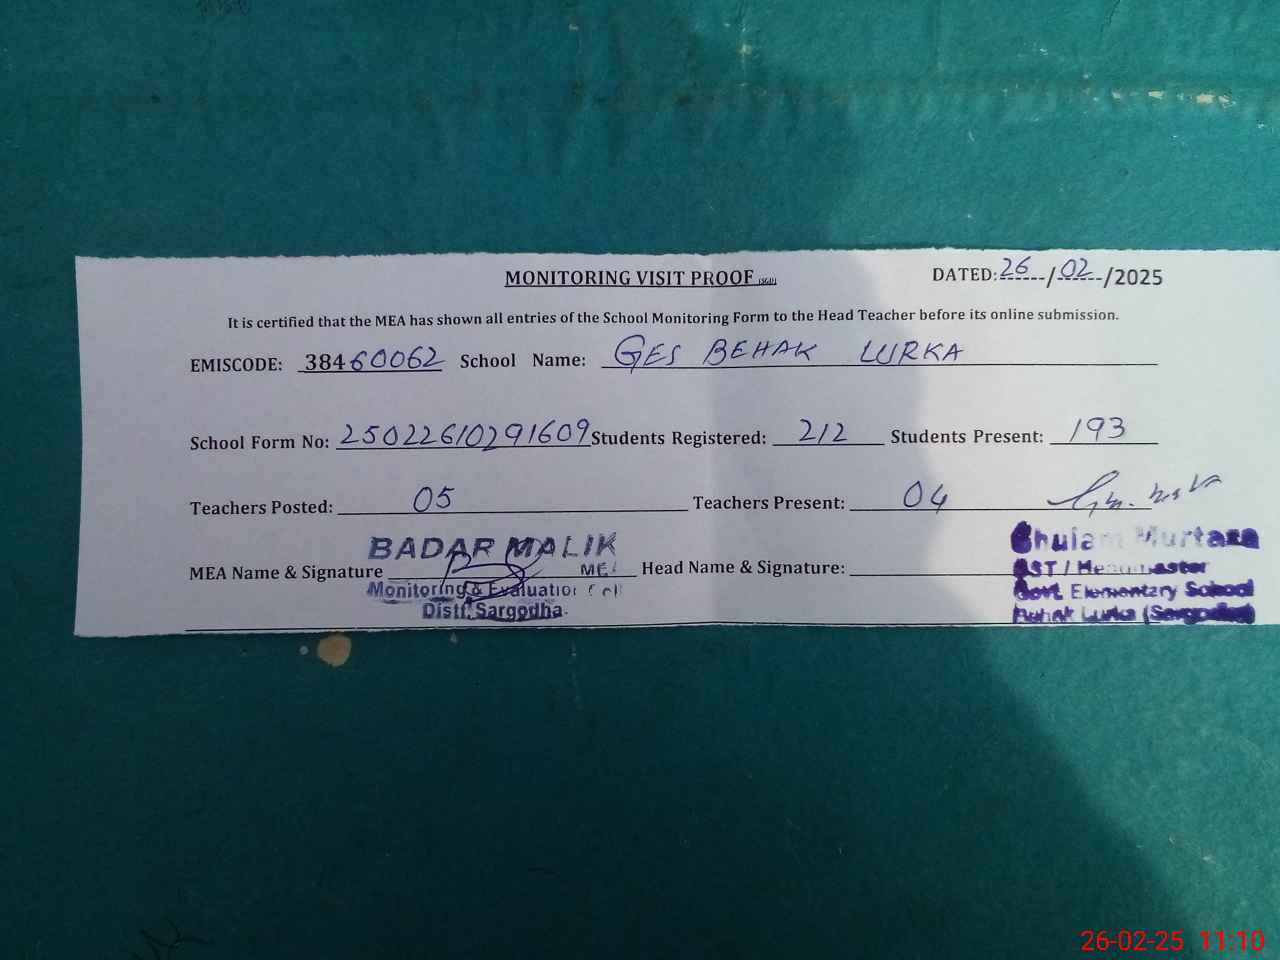 MONITORING VISIT PROOF (SGD)
DATED: 26/02/2025
It is certified that the MEA has shown all entries of the School Monitoring Form to the Head Teacher before its online submission.
EMISCODE: 38460062 School Name: GES BEHAK LURKA
School Form No: 25022610291609 Students Registered: 212 Students Present: 193
Teachers Posted: 05 Teachers Present: 04
MEA Name & Signature Head Name & Signature:
BADAR MALIK
Monitoring & Evaluation
Distt. Sargodha.
Ghulam Murtaza
SST / Headmaster
Govt. Elementary School
Lurka (Sargodha)
26-02-25 11:10